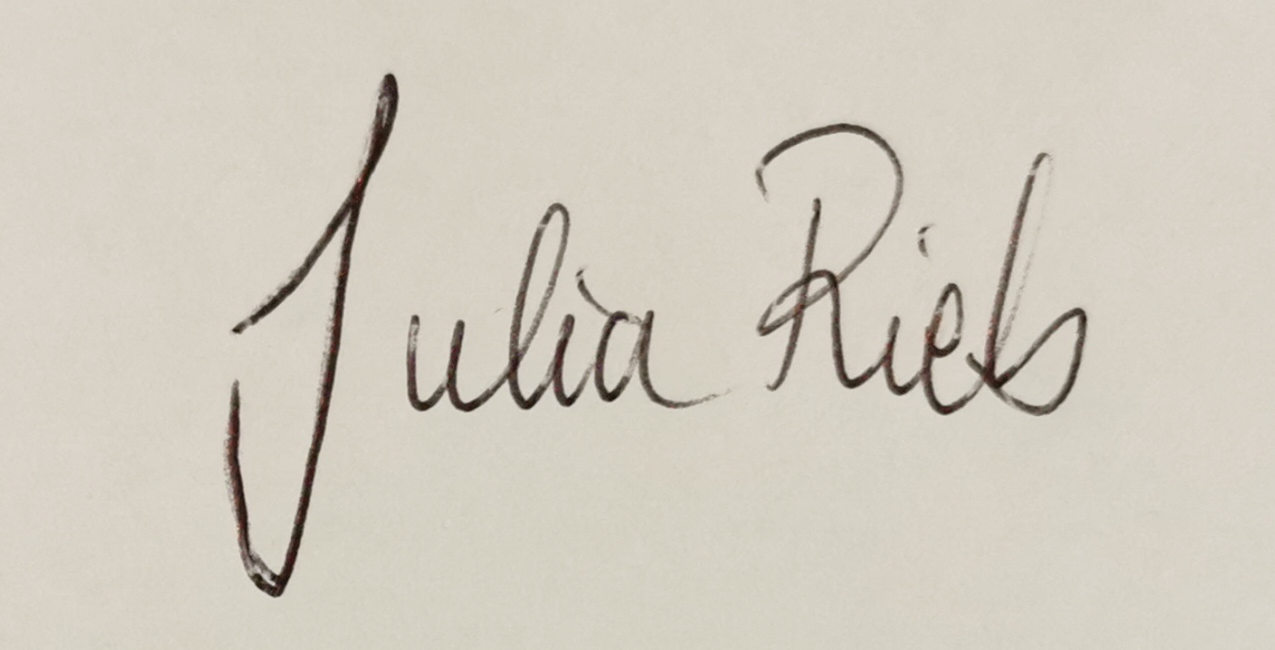 Julia Rieb